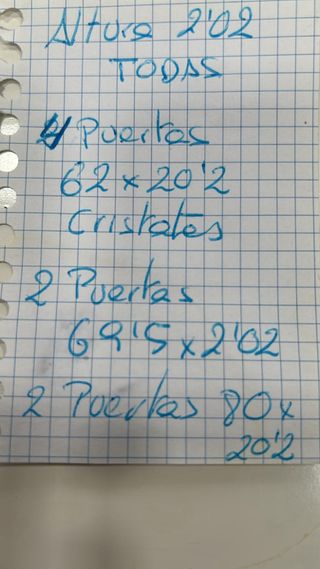 Altura 2'02
TODAS
4 Puertas
62 x 20'2
Cristales
2 Puertas
69'5 x 2'02
2 Puertas 80 x
20'2